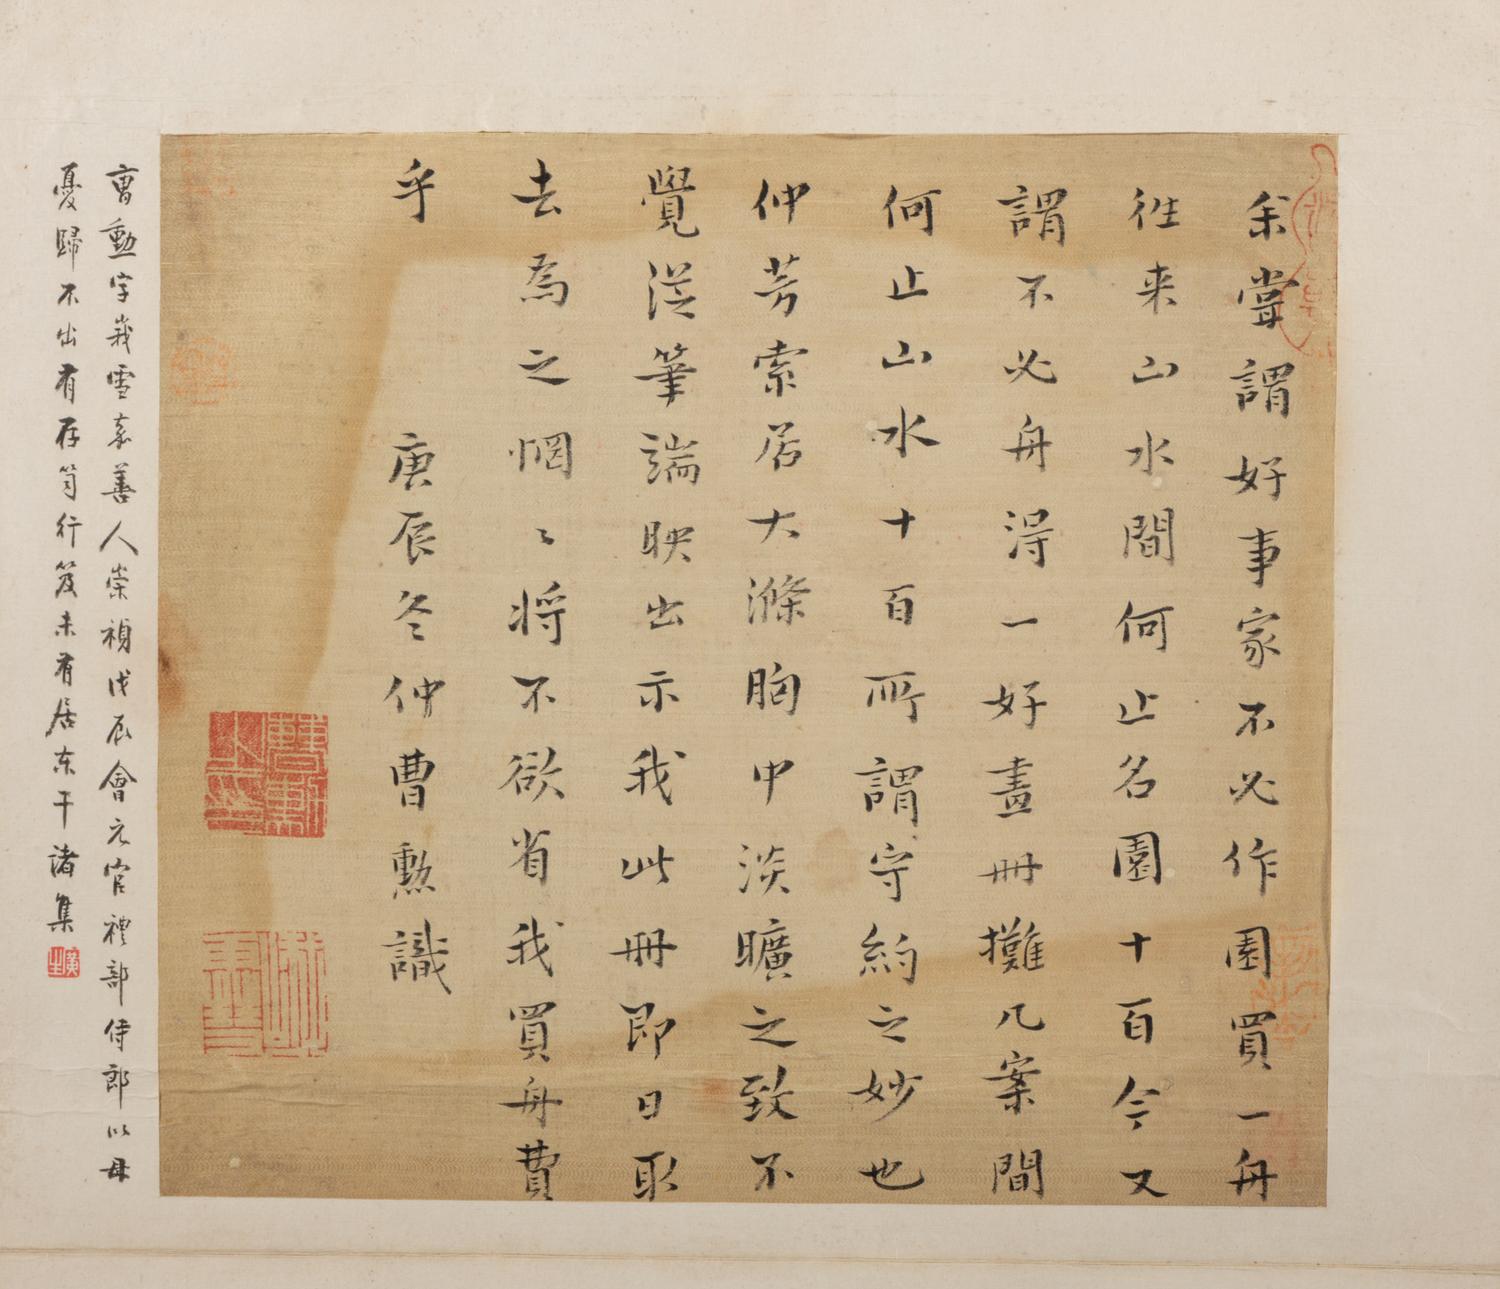 余嘗謂好事家不必作園買一舟
往来山水間何止名園十百今又
謂不必舟得一好畫冊攤几案間
何止山水十百所謂守約之妙也
仲芳索居大滌胸中淡曠之致不
覺從筆端映出示我此冊即日取
去為之惘〻将不欲省我買舟費
乎
庚辰冬仲曹勲識
曹勳字峩雪嘉善人崇禎戊辰會元官禮部侍郎以母
憂歸不出有存笥行笈未有居東干諸集